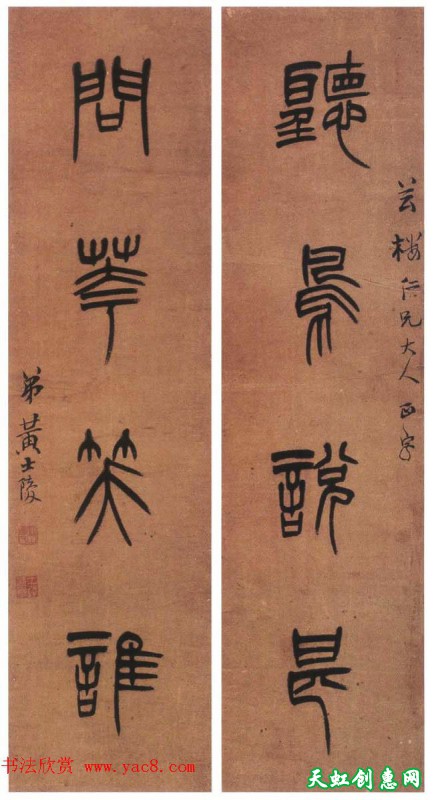 聽鳥說甚
芸樓仁兄大人正字
問華笑誰
弟黃士陵
书法欣赏 www.yac8.com
天虹创惠网